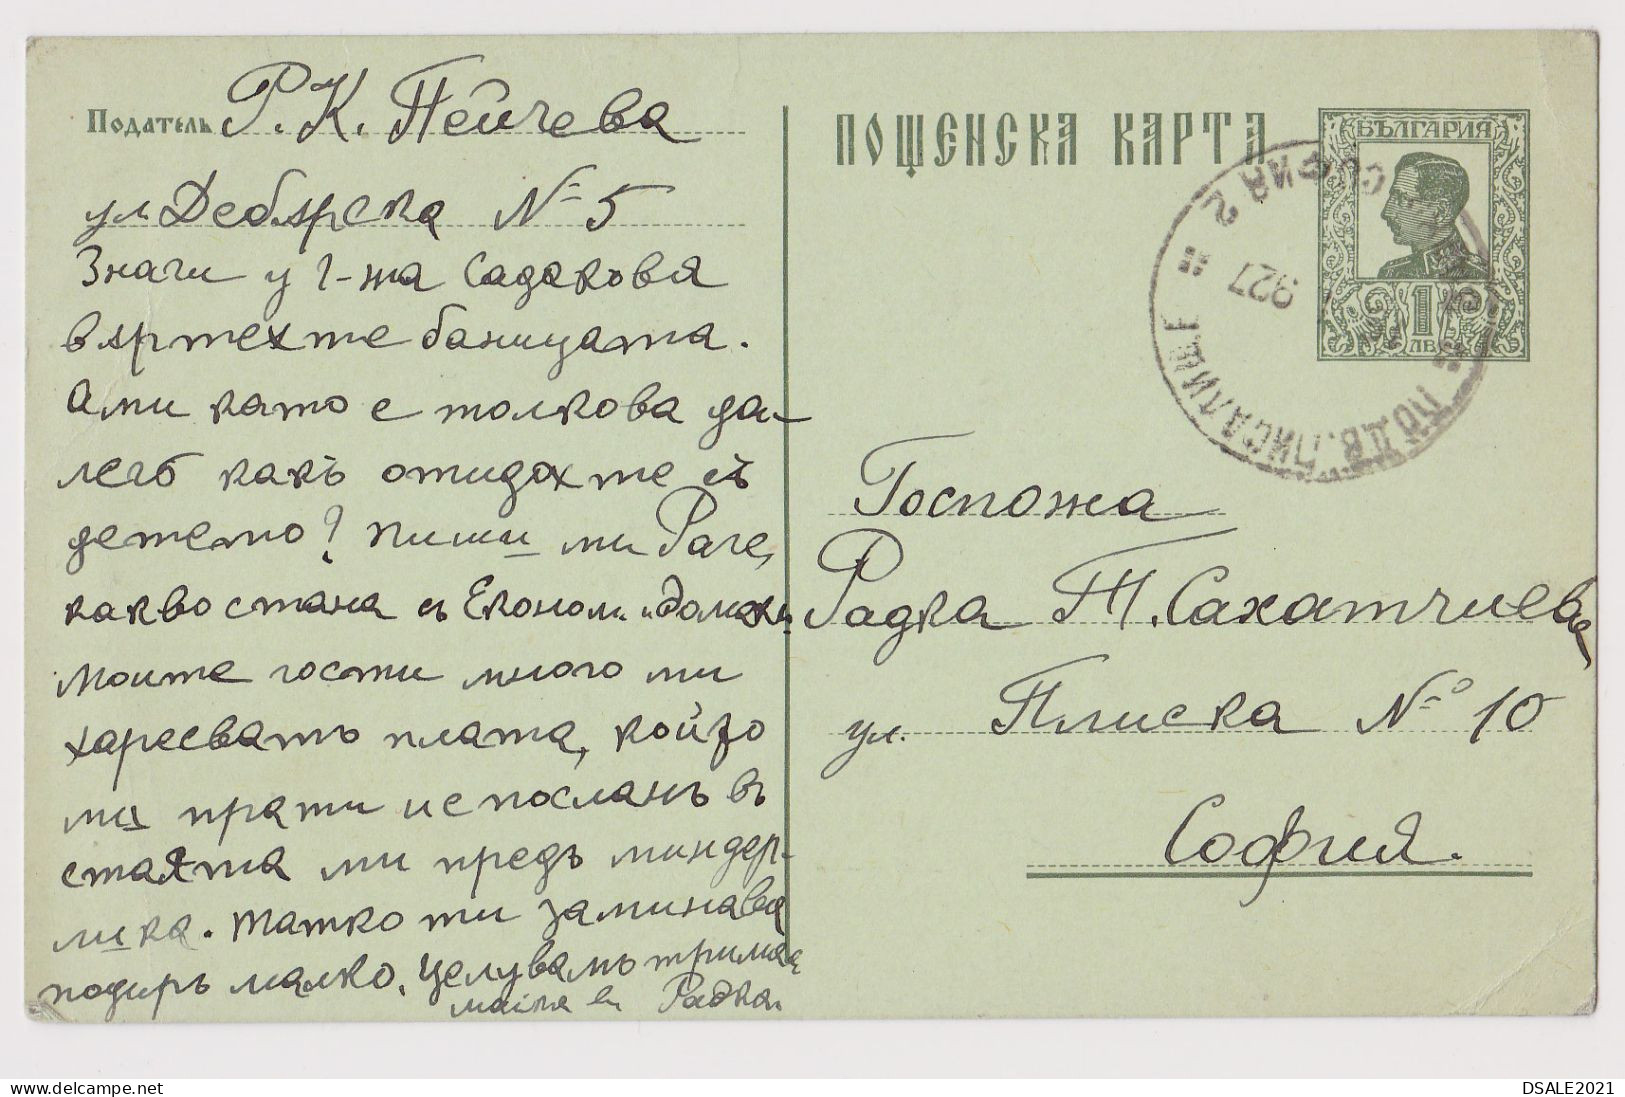 Податель Р. К. Пейчева
ул Дебърска № 5
Значи у г-жа Садакова
въртехте баницата.
Ами като е толкова да-
леч какъ отидохте съ
детето? Пиши ми Раче,
какво стана съ Економ. и домак.
Моите гости много ми
харесватъ плата, който
ми прати и е посланъ въ
стаята ми предъ миндер-
лика. Татко ти заминава
подиръ малко. Целувамъ трима
майка ви Радка.
ПОЩЕНСКА КАРТА
БЪЛГАРИЯ
1 ЛВ
СОФИЯ 2
927
ПОДВ. ПИСАЛИЩЕ
Госпожа
Радка Т. Сахатчиева
ул. Плиска № 10
София.
DSALE2021